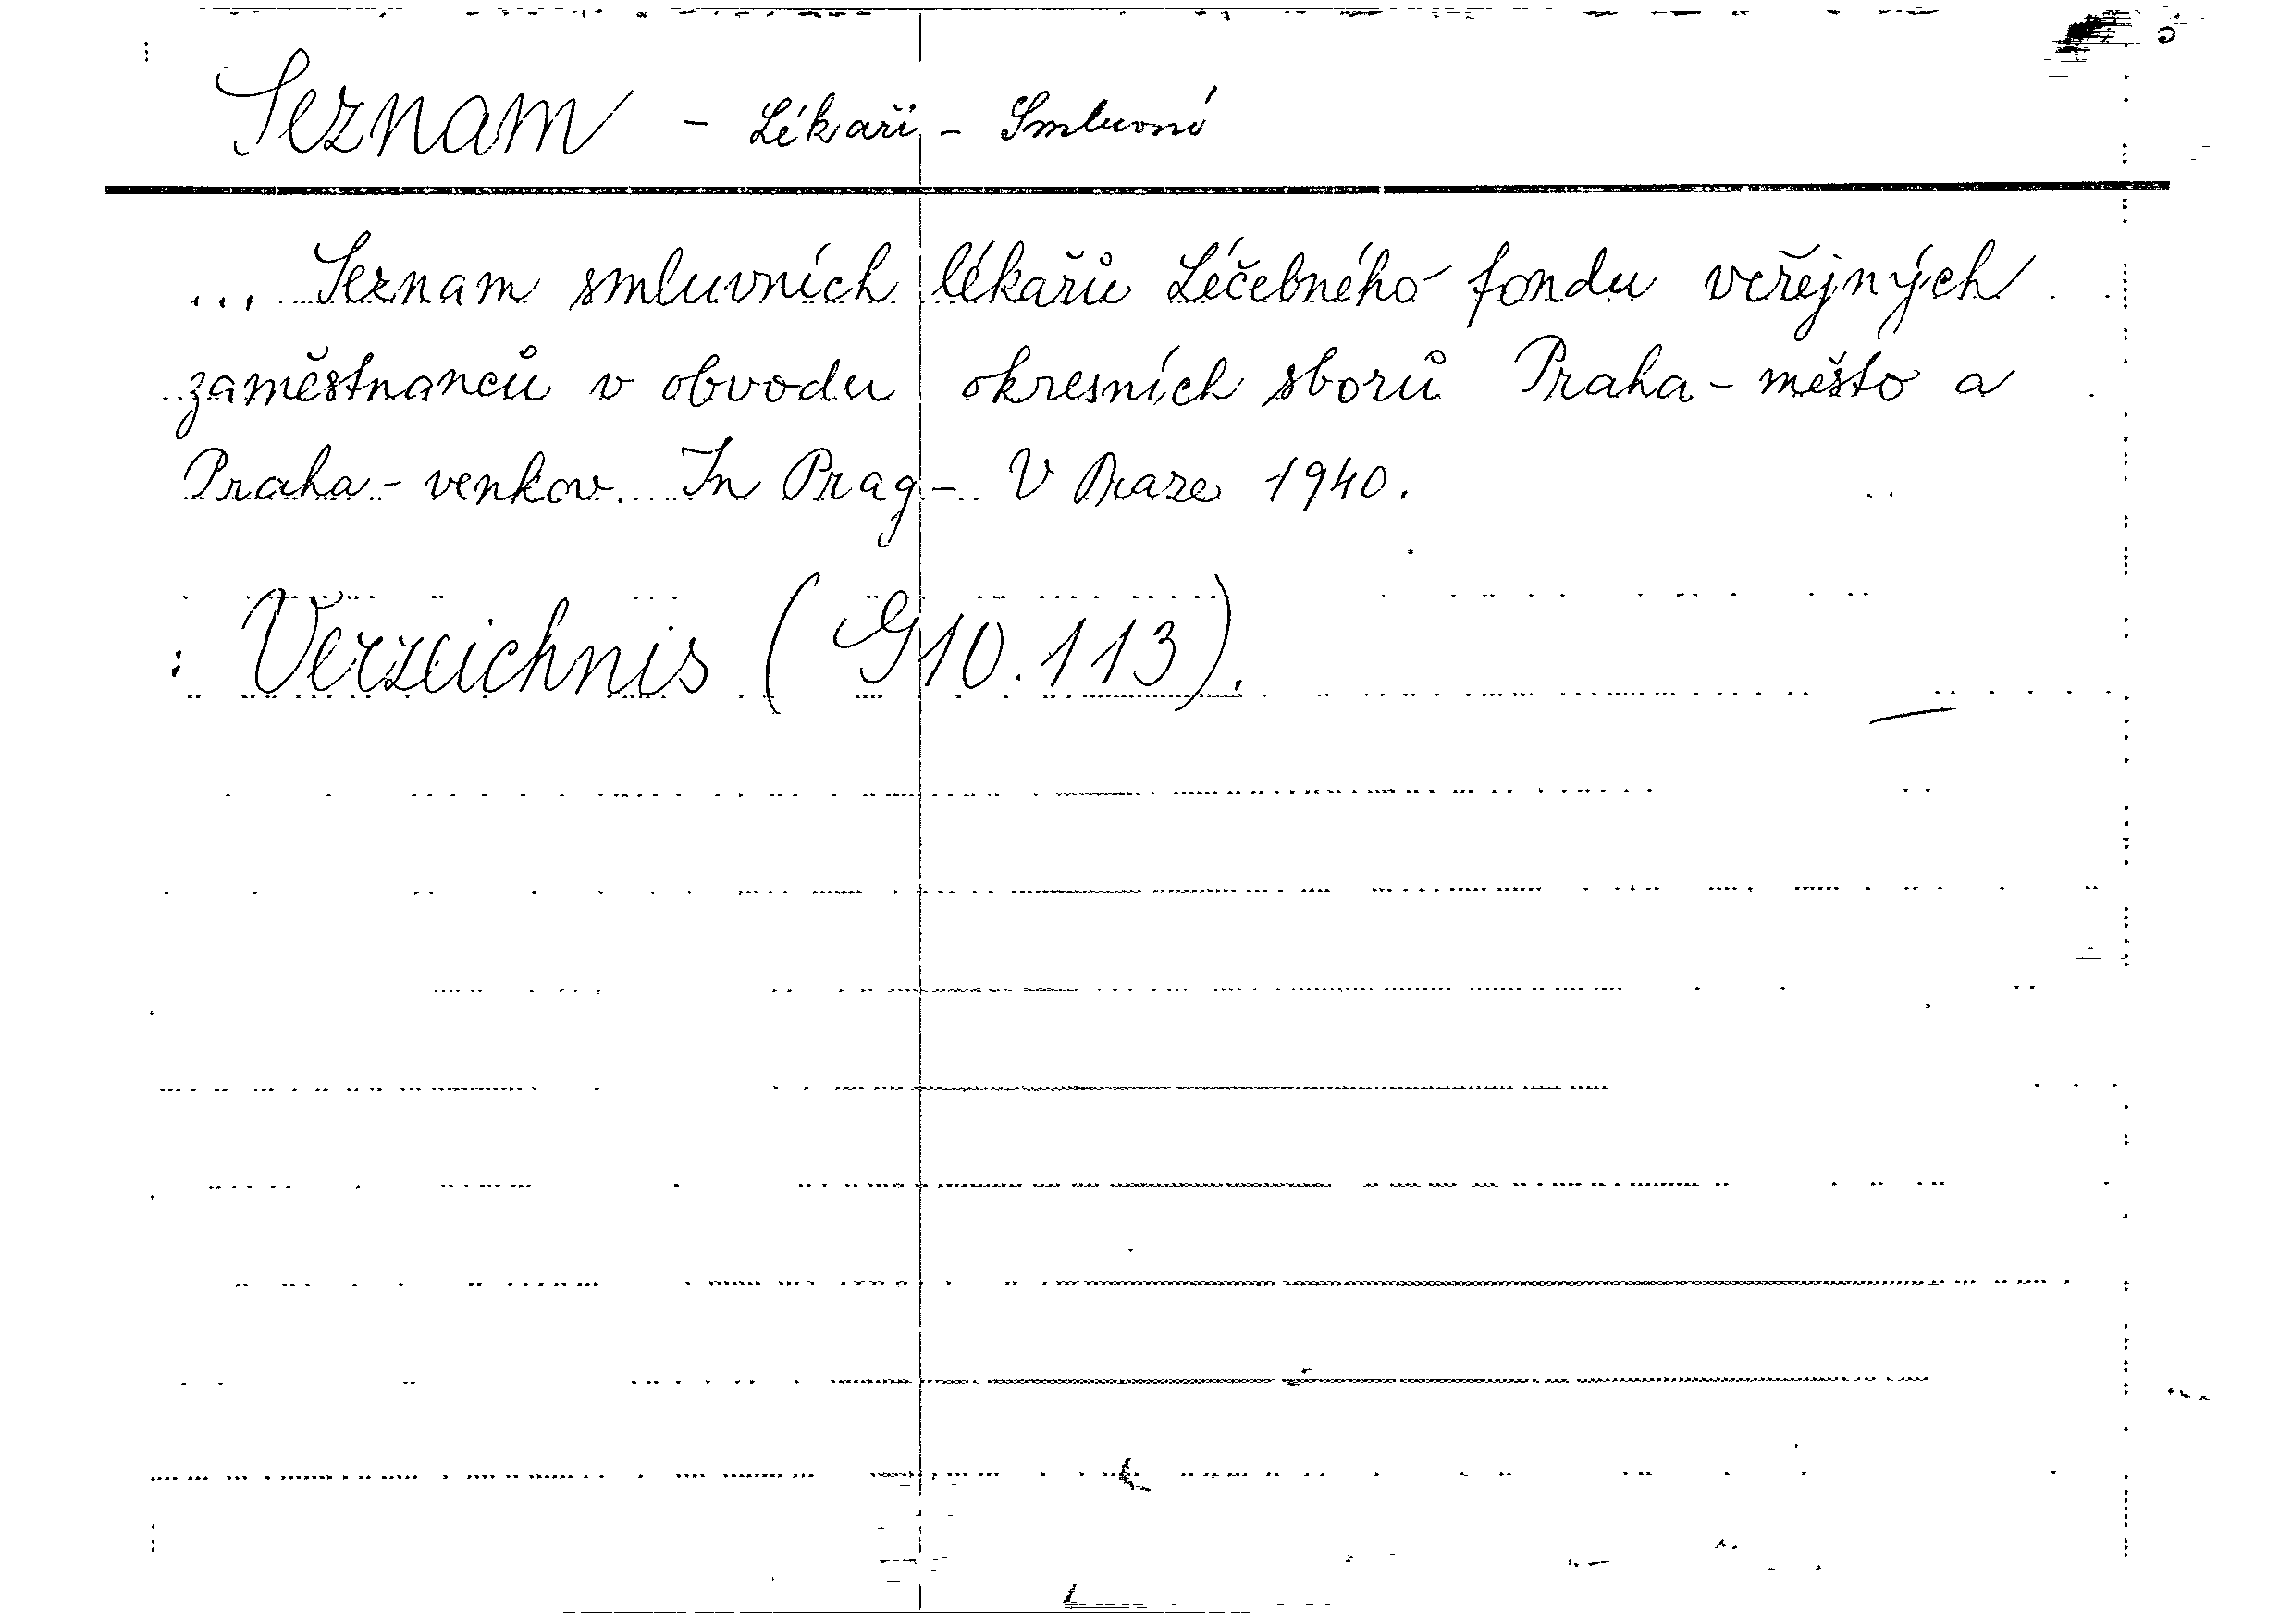 Seznam - Lékaři - Smluvní
... Seznam smluvních lékařů Léčebného fondu veřejných
zaměstnanců v obvodu okresních sborů Praha - město a
Praha - venkov. In Prag - V Praze 1940.
: Verzeichnis (G10.113).